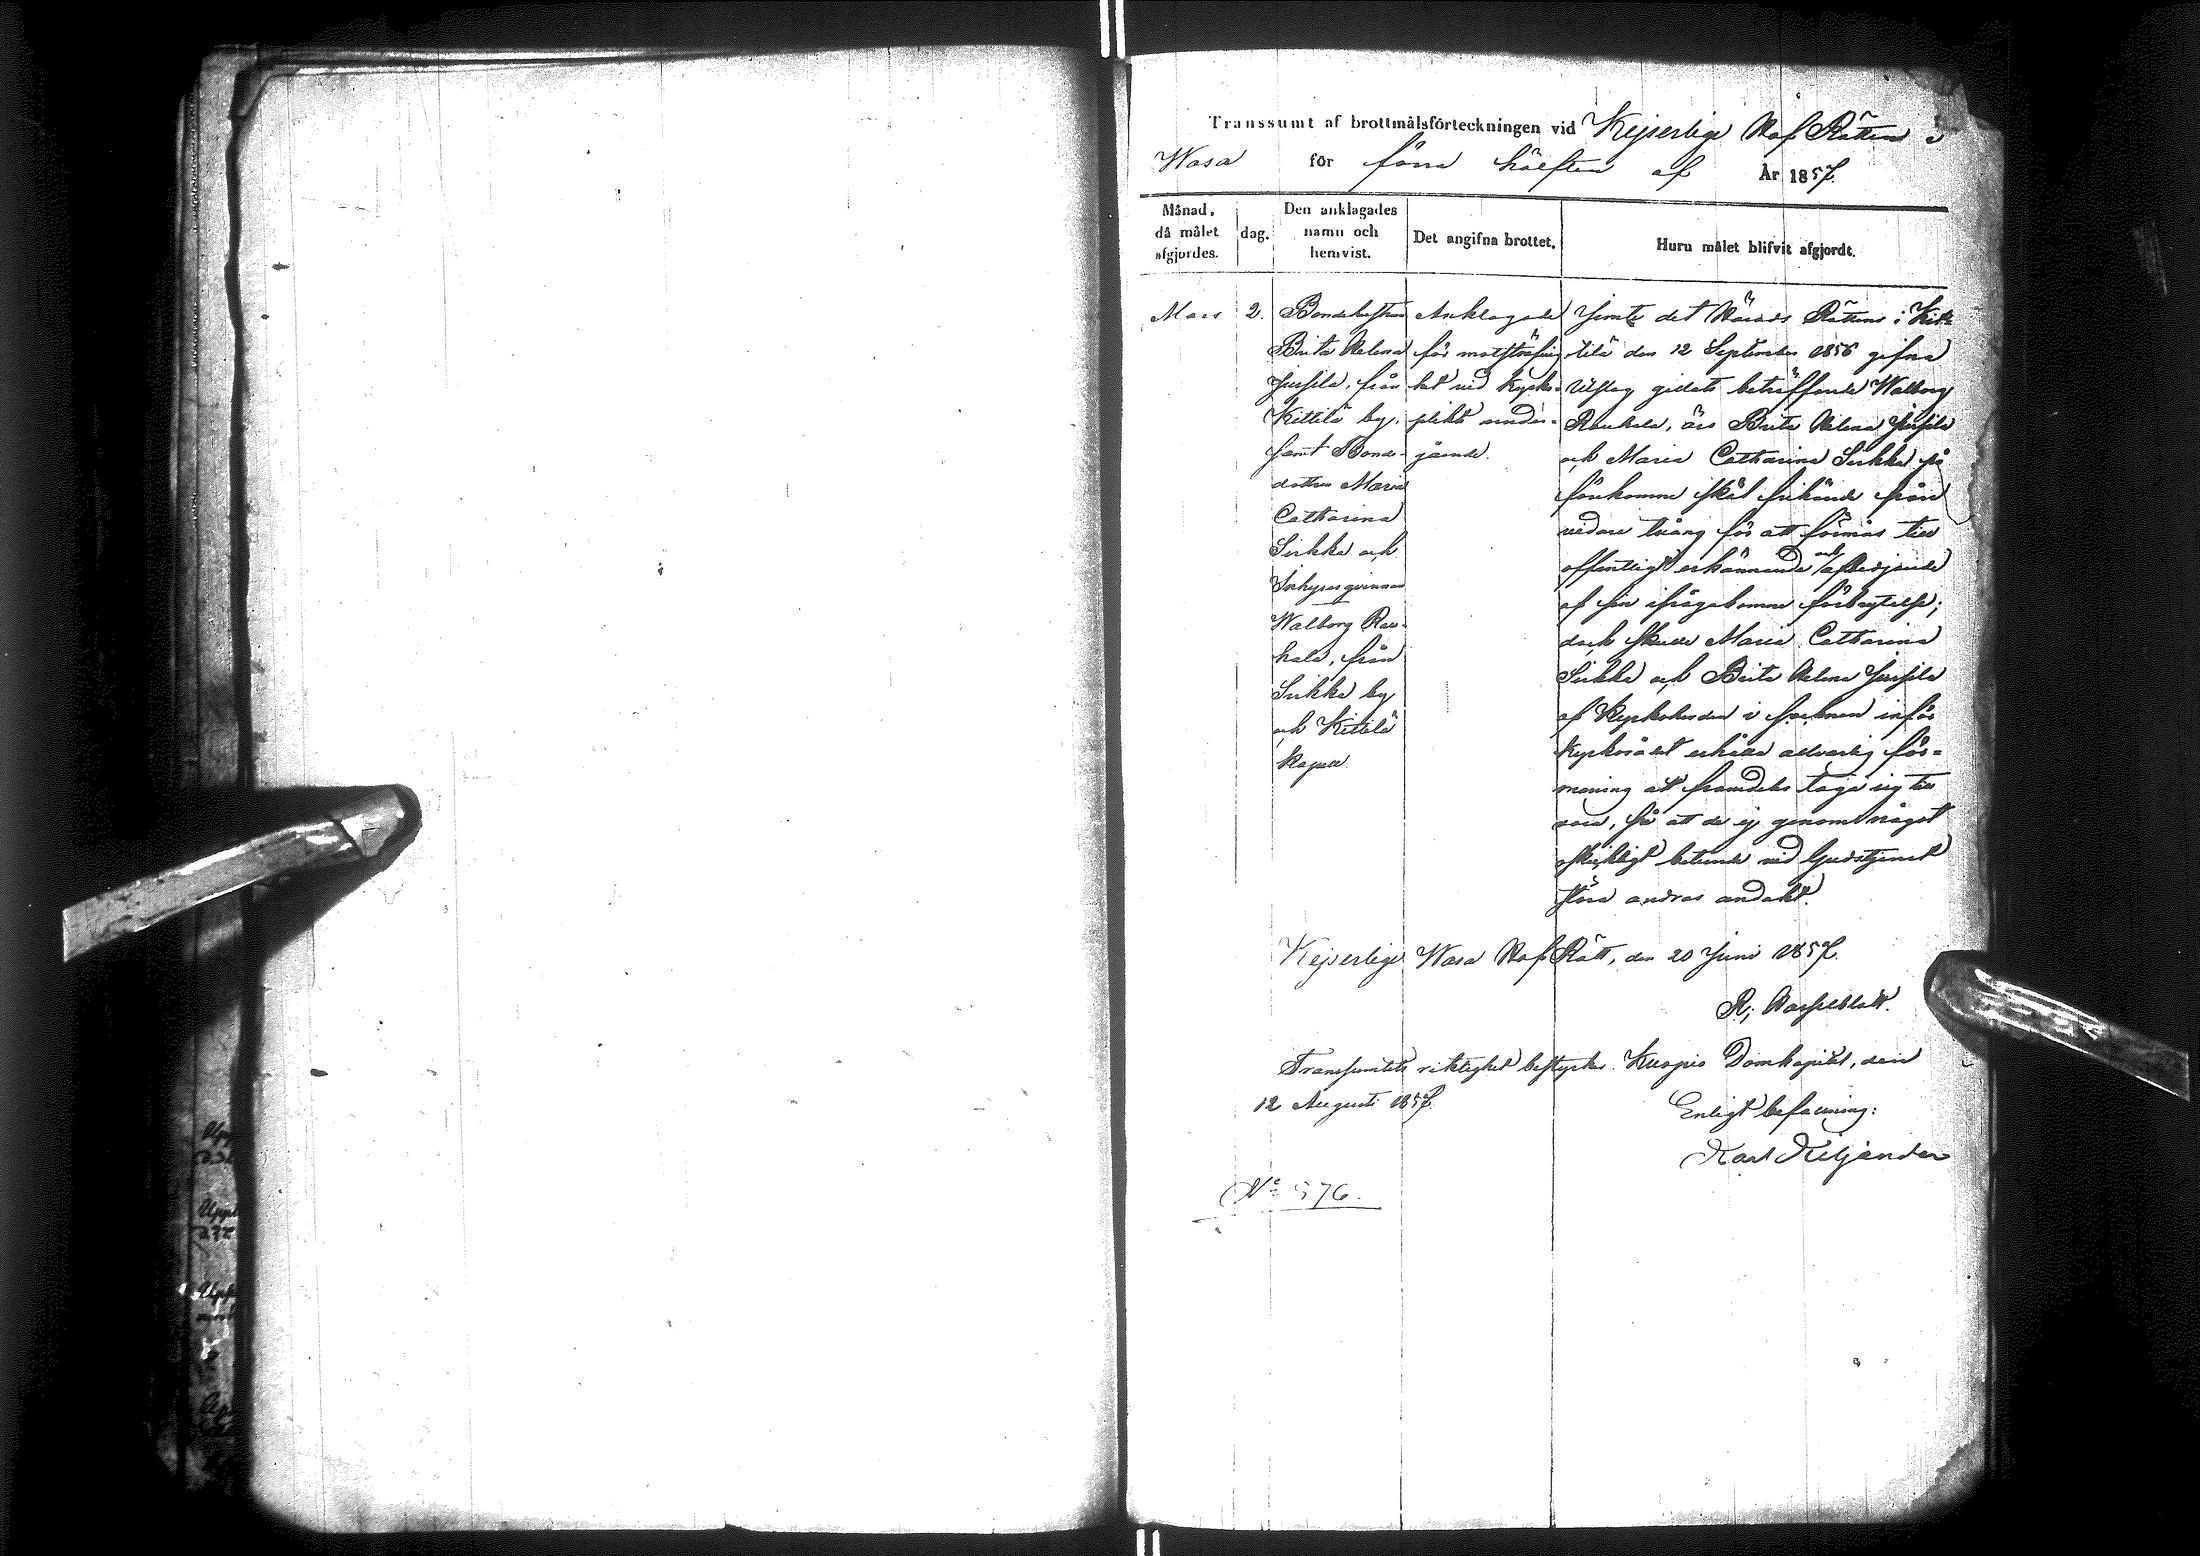 Transsumt af brottmålsförteckningen vid Kejserlige Hof Rätten i
Wasa för förra hälften af År 1857.
Månad, då målet afgjordes.
dag.
Den anklagades namn och hemvist.
Det angifna brottet.
Huru målet blifvit afgjordt.
Mars
2.
Bondehustrun
Brita Helena
Jussila, från
Kittilä by,
samt Bonde-
dottren Maria
Catharina
Sirkka och
Inhysesqvinnan
Walborg Rau-
hala, från
Sirkka by
och Kittilä
Kapell.
Anklagade
för motsträfvig-
het vid kyrko-
plikts under-
gående.
Jemte det Härads Rättens i Kit-
tilä den 12 September 1856 gifna
Utslag gillats beträffande Walborg
Raukala, äro Brita Helena Jussila
och Maria Catharina Sirkka på
förekomne skäl frikände från
vidare tvång för att förmås till
offentligt erkännande och afbedjande
af sin ifrågakomne förbrytelse;
dock skulle Maria Catharina
Sirkka och Brita Helena Jussila
af Kyrkoherden i socknen inför
Kyrkorådet erhålla allvarlig för-
maning att framdeles taga sig till
vara, så att de ej genom något
oskickligt beteende vid Gudstjenst
störa andras andakt.
Kejserlige Wasa Hof Rätt, den 20 Juni 1857.
R. Hasselblatt.
Transsumtets riktighet bestyrker. Kuopio Domkapitel, den
12 Augusti 1857.
Enligt befallning:
Karl Kiljander
No 576.